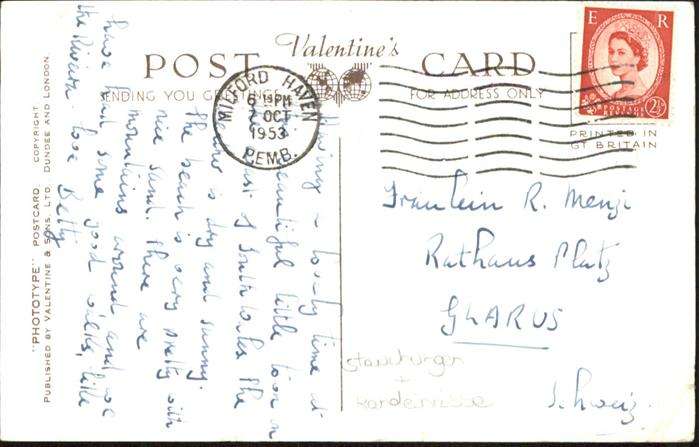 POST Valentine's CARD
SENDING YOU GREETINGS
FOR ADDRESS ONLY
MILFORD HAVEN
6 15 PM
OCT
1953
PEMB.
E R
POSTAGE REVENUE
2½
PRINTED IN
GT BRITAIN
"PHOTOTYPE" POSTCARD COPYRIGHT
PUBLISHED BY VALENTINE & SONS, LTD. DUNDEE AND LONDON.
Having a lovely time at
beautiful little town on
of South Wales. The
is dry and sunny.
The beach is very pretty with
nice sand. There are
mountains around and we
have had some good walks, like
the Riviera. love Betty
Fraulein R. Menzi
Rathaus Platz
GLARUS
Schweiz.